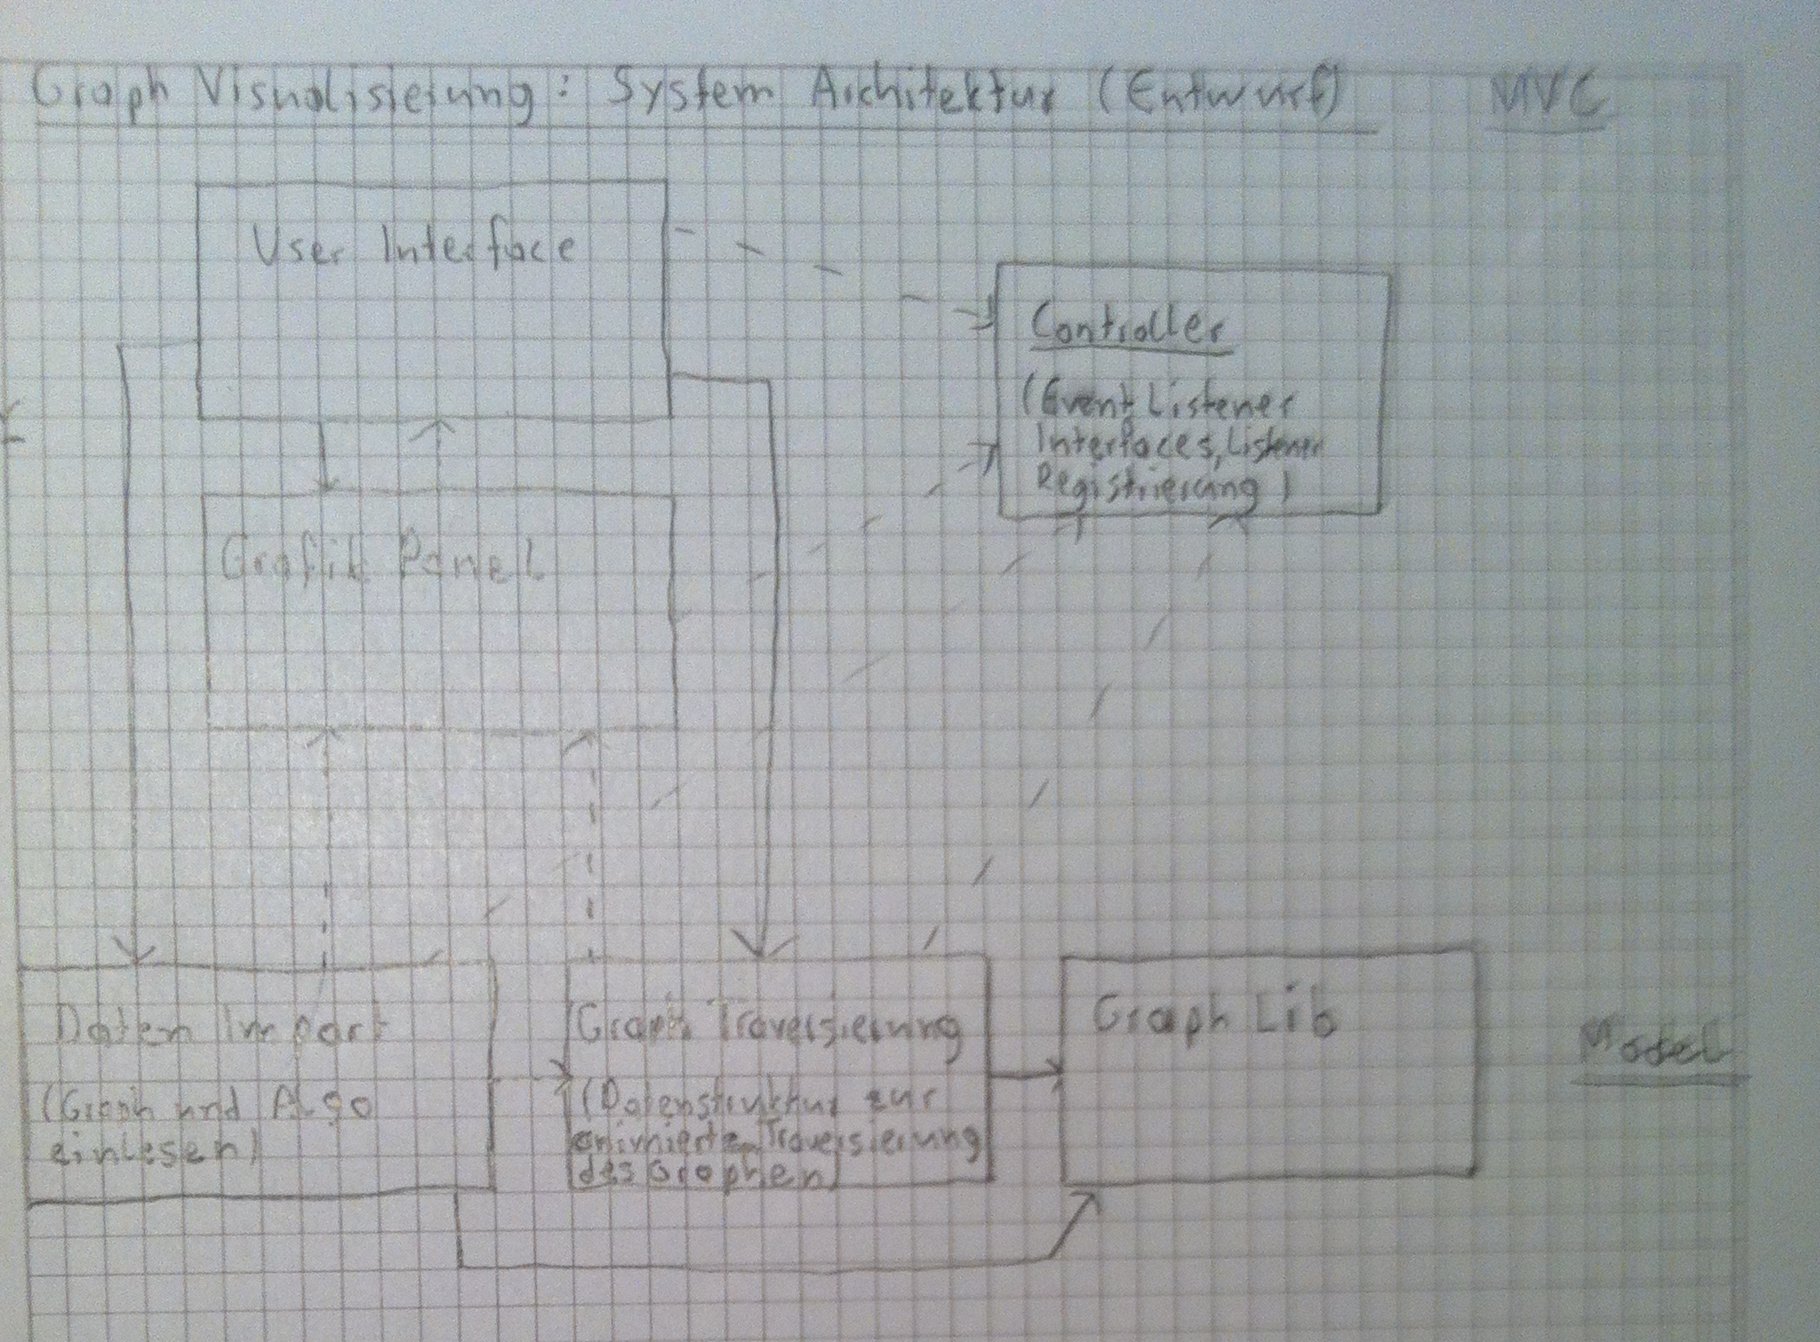 Graph Visualisierung: System Architektur (Entwurf)
MVC
User Interface
Controller
(Event Listener
Interfaces, Listener
Registrierung)
Grafik Panel
Daten Import
(Graph und Algo
einlesen)
Graph Traversierung
(Datenstruktur zur
animierten Traversierung
des Graphen)
Graph Lib
Model